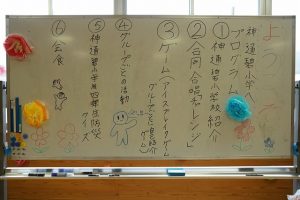 ようこそ
神通碧小学へ
プログラム
①神通碧小学校紹介
②合同合唱「チャレンジ」
③ゲーム(アイスブレイクゲーム
グループごと自己紹介
ゲーム)
④グループごとの活動
⑤神通碧小学校四年生防災
クイズ
⑥会食